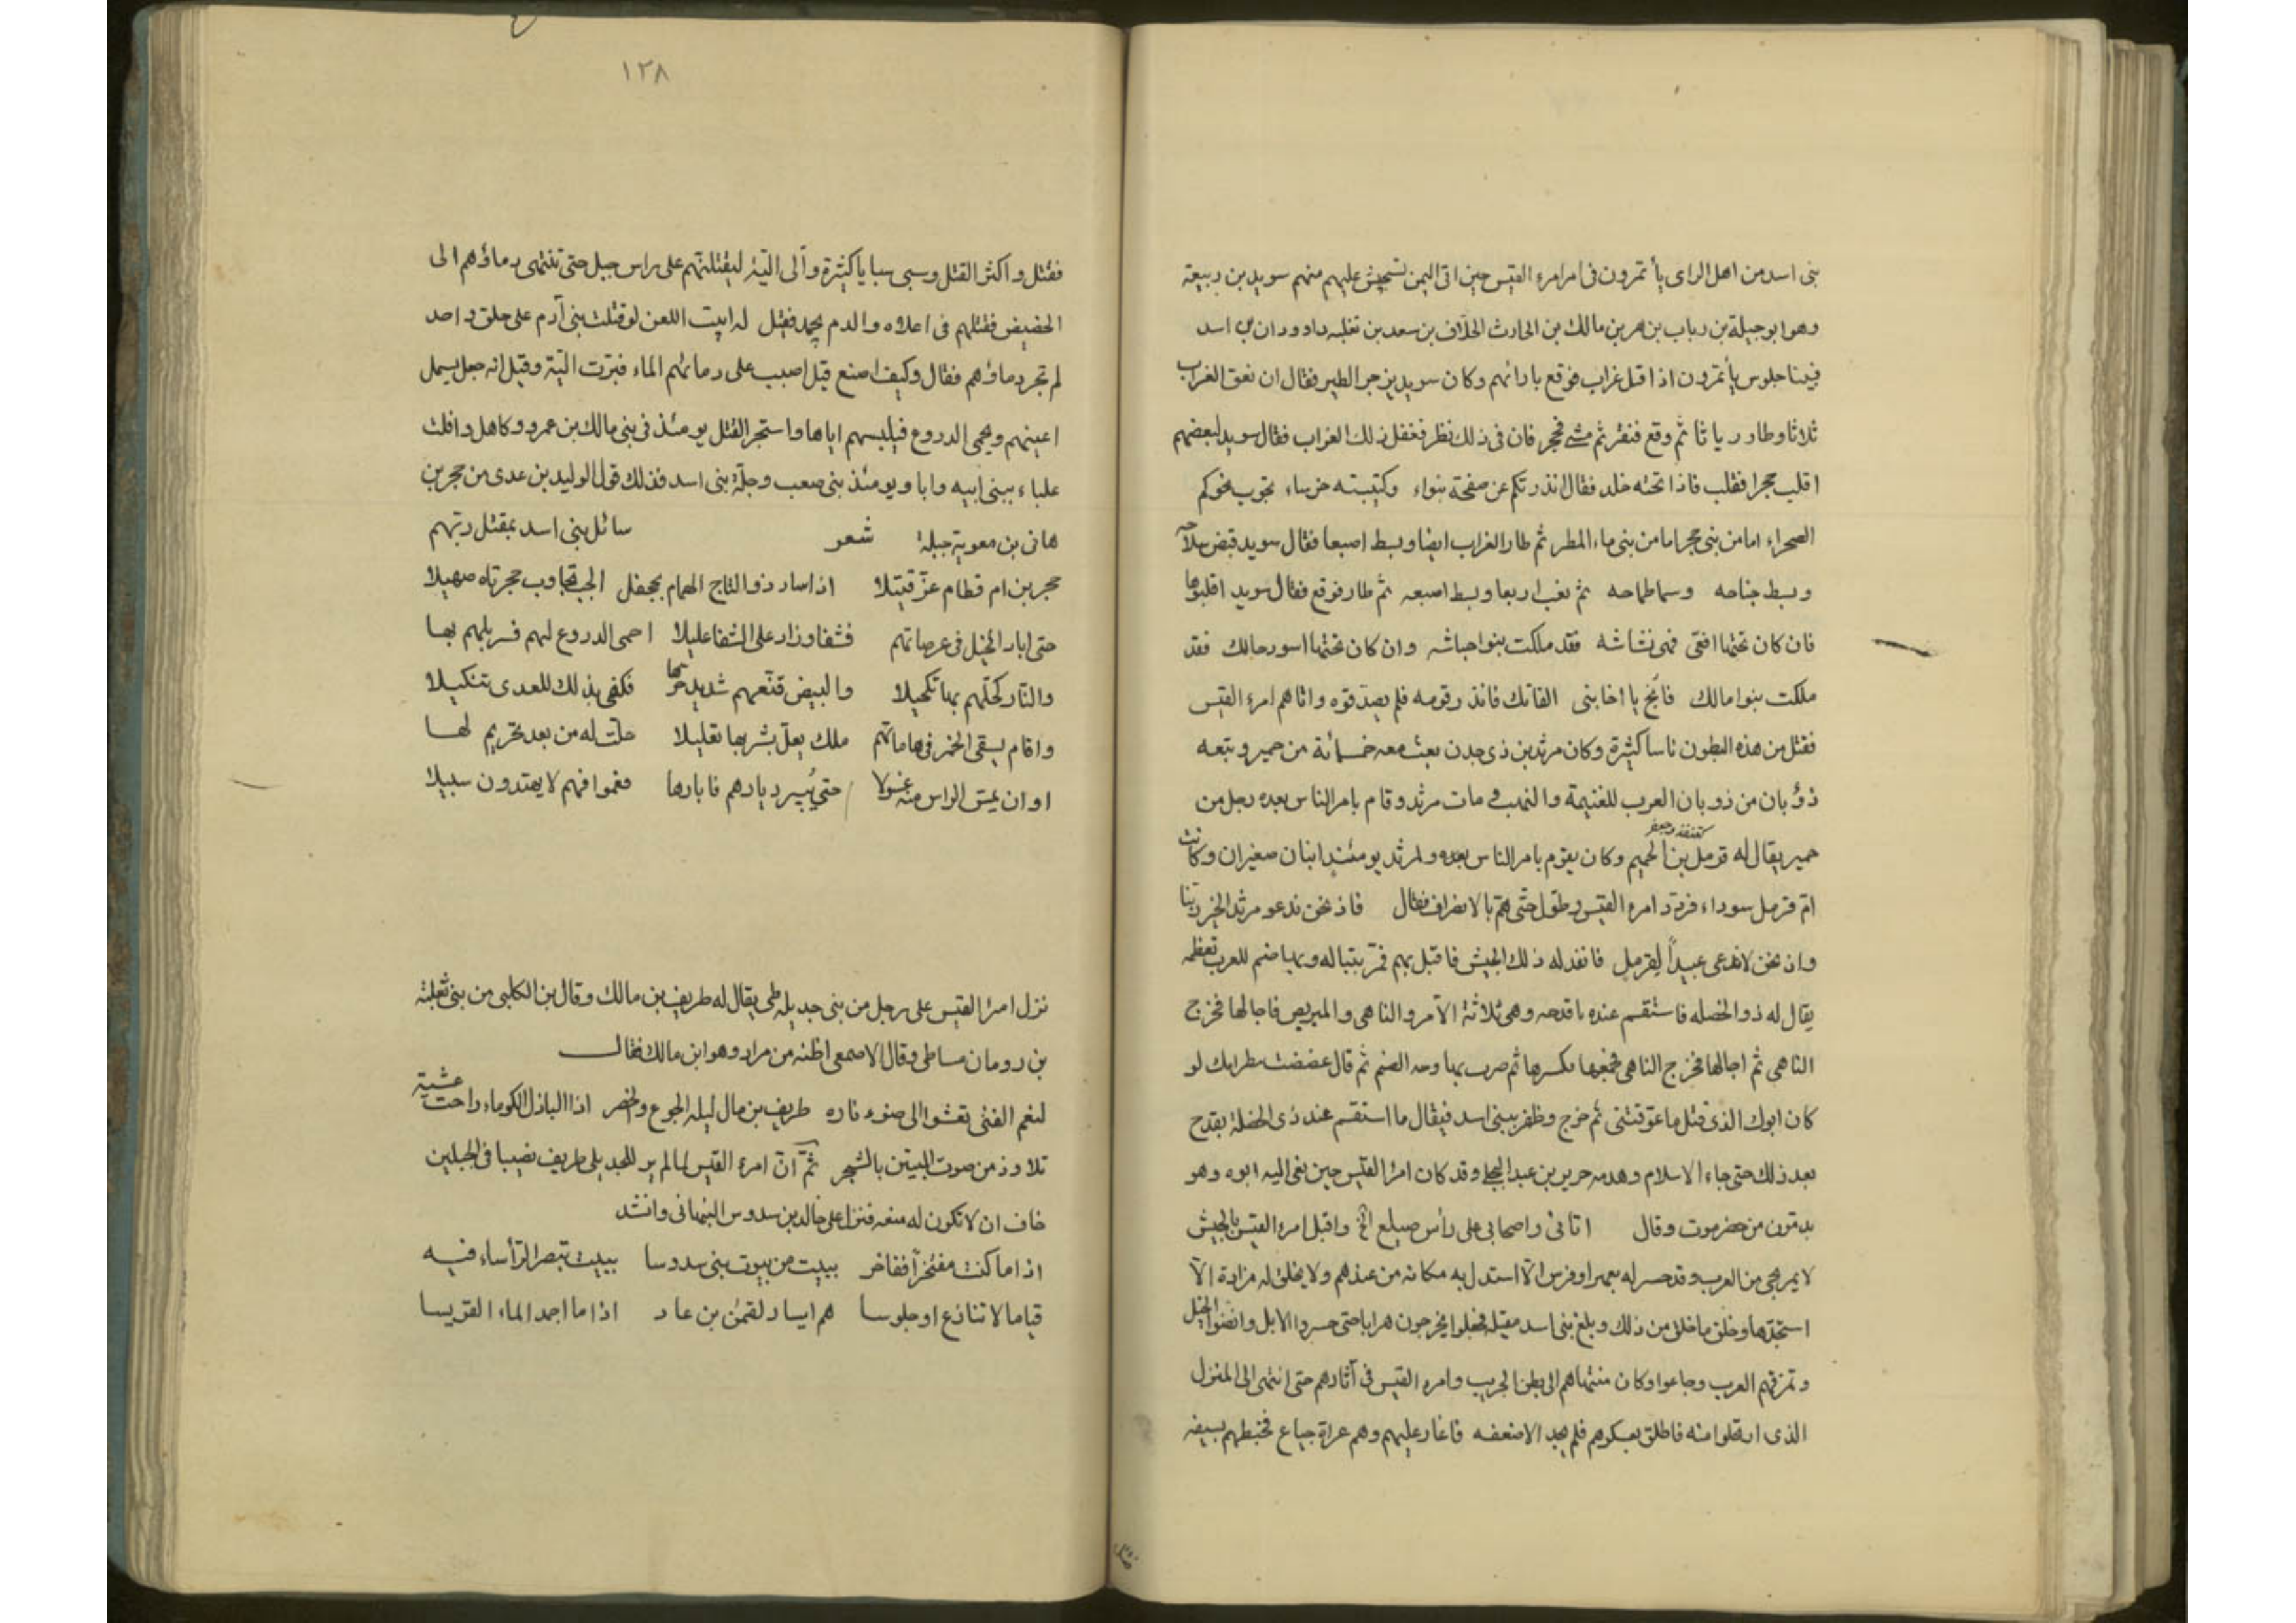 بنى اسد من اهل الراى يأتمرون فى امر امرء القيس حين اتى اليمن عليهم منهم سويد بن ربيعة
وهو ابو جبيلة بن رباب بن مالك بن الحارث الحلاف بن سعد بن ثعلبه داودان بن اسد
فبينا جلوس يأتمرون اذ اقبل غراب فوقع بازائهم وكان سويد يزجر الطير فقال ان نعق الغراب
ثلاثا وطار ثم وقع فنقر ثم مشى فان فى ذلك نظر ففعل ذلك الغراب فقال سويد لبعضهم
اقلب حجرا فقلب فاذا تحته خلد فقال انذرتكم عن صفحة وكتيبته خرساء تجوب نحوكم
الصحراء اما من بنى حجر اما من بنى ماء المطر ثم طار الغراب ايضا وبسط اصبعا فقال سويد قبض سلاحه
وبسط جناحه وسما طماحه ثم نعب اربعا وبسط اصبعه ثم طار فوقع فقال سويد اقلبوها
فان كان تحتها افعى فهى نشاشه فقد ملكت بنوا حباشه وان كان تحتها اسود حالك فقد
ملكت بنوا مالك يا اخا بنى الفاتك فانذر قومه فلم يصدقوه واتاهم امرء القيس
فقتل من هذه البطون ناسا كثيرة وكان مرثد بن ذى جدن بعث معه خمسمائة من حمير وتبعه
ذؤبان من ذوبان العرب للغنيمة والنهب مات مرثد وقام بامر الناس بعده رجل من
كقنفذ وجعفر
حمير يقال له قرمل بن الحميم وكان يقوم بامر الناس بعده ولمرثد يومئذ ابنان صغيران وكانت
ام قرمل سوداء فردد امرء القيس وطول حتى هم بالانصراف فقال فاذ نحن ندعو مرثد الخير ربنا
واذ نحن لا ندعى عبيداً لقرمل فانفذ له ذلك الجيش فاقبل بهم فمر بتباله وبها صنم للعرب تعظمه
يقال له ذو الخلصه فاستقسم عنده باقدحه وهى ثلاثة الآمر والناهى والمتربص فاجالها فخرج
الناهى ثم اجالها فخرج الناهى فجمعها فكسرها ثم ضرب بها وجه الصنم ثم قال عضضت ببظر ابك لو
كان ابوك الذى قتل ما عوقتنى ثم خرج وظفر ببنى اسد فيقال ما استقسم عند ذى الخلصة بقدح
بعد ذلك حتى جاء الاسلام وهدمه جرير بن عبد البجلى وقد كان امرا القيس حين نعى اليه ابوه وهو
بدمون من حضرموت وقال اتانى واصحابى على رأس صيلع الخ واقبل امرء القيس بالجيش
لا يمر بحى من العرب وقد حسر له بعير او فرس الا استدل به مكانه من عندهم ولا يخلق له مزادة الا
استجدها وخلق ما خلق من ذلك وبلغ بنى اسد مقبله فجعلوا يخرجون هرابا حتى حسروا الابل وانضوا الخيل
وتمزقهم العرب وجاعوا وكان منتهاهم الى بطن الجريب وامرء القيس فى آثارهم حتى انتهى الى المنزل
الذى ارتحلوا منه فاطلق بعسكرهم فلم يجد الا ضعفه فاغار عليهم وهم عراة جياع فخبطهم بسيفه
١٢٨
فقتل واكثر القتل وسبى سبايا كثيرة وآلى اليّة ليقتلنهم على راس جبل حتى تنتهى دماؤهم الى
الحضيض فقتلهم فى اعلاه والدم يجمد فقيل له ابيت اللعن لو قتلت بنى آدم على حلق واحد
لم تجر دماؤهم فقال وكيف اصنع قيل اصبب على دمائهم الماء فبرّت اليّة وقيل انه جعل يسمل
اعينهم ويحمى الدروع فيلبسهم اياها واستحر القتل يومئذ فى بنى مالك بن عمرو وكاهل وافلت
علباء ببنى ابيه يومئذ بنى صعب وجلّة بنى اسد فذلك قول الوليد بن عدى من حجر بن
هانى بن معوية جبلة شعر سائل بنى اسد بمقتل ربهم
حجر بن ام قطام عزّ قتيلا اذ اسار ذو التاج الهمام بجحفل الجب تجاوب حجرتاه صهيلا
حتى ابار الخيل فى عرصاتهم فشفا وزاد على الشفا عليلا احمى الدروع لهم فسربلهم بها
والنار كحّلهم بها تكحيلا والبيض قنّعهم شديد حرّها فكفى بذلك للعدى تنكيلا
واقام يسقى الخمر فى هاماتهم ملك يعلّ بشربها تعليلا حلّت له من بعد تحريم لها
او ان يمس الراس منه غسولا حتى يُبير ديارهم فابارها فعموا فهم لا يهتدون سبيلا
نزل امرا القيس على رجل من بنى جديله طى يقال له طريف بن مالك وقال بن الكلبى من بنى ثعلبة
بن رومان من طى وقال الاصمعى اظنه من مراد وهو ابن مالك فقال
لنعم الفتى تعشوا الى ضوء ناره طريف بن مال ليله الجوع والخصر اذا البازل الكوماء راحت عشية
تلاوذ من صوت المبيتين بالشجر ثم انّ امرء القيس لما لم ير للجديلى طريف نصيبا فى الجبلين
خاف ان لا تكون له منعه فنزل على خالد بن سدوس النبهانى وانشد
اذا ما كنت مفتخراً ففاخر ببيت من بيوت بنى سدوسا ببيت تبصر الرأساء فيه
قياما لا تنازع او جلوسا هم ايسار لقمٰن بن عاد اذا ما اجمد الماء القريسا